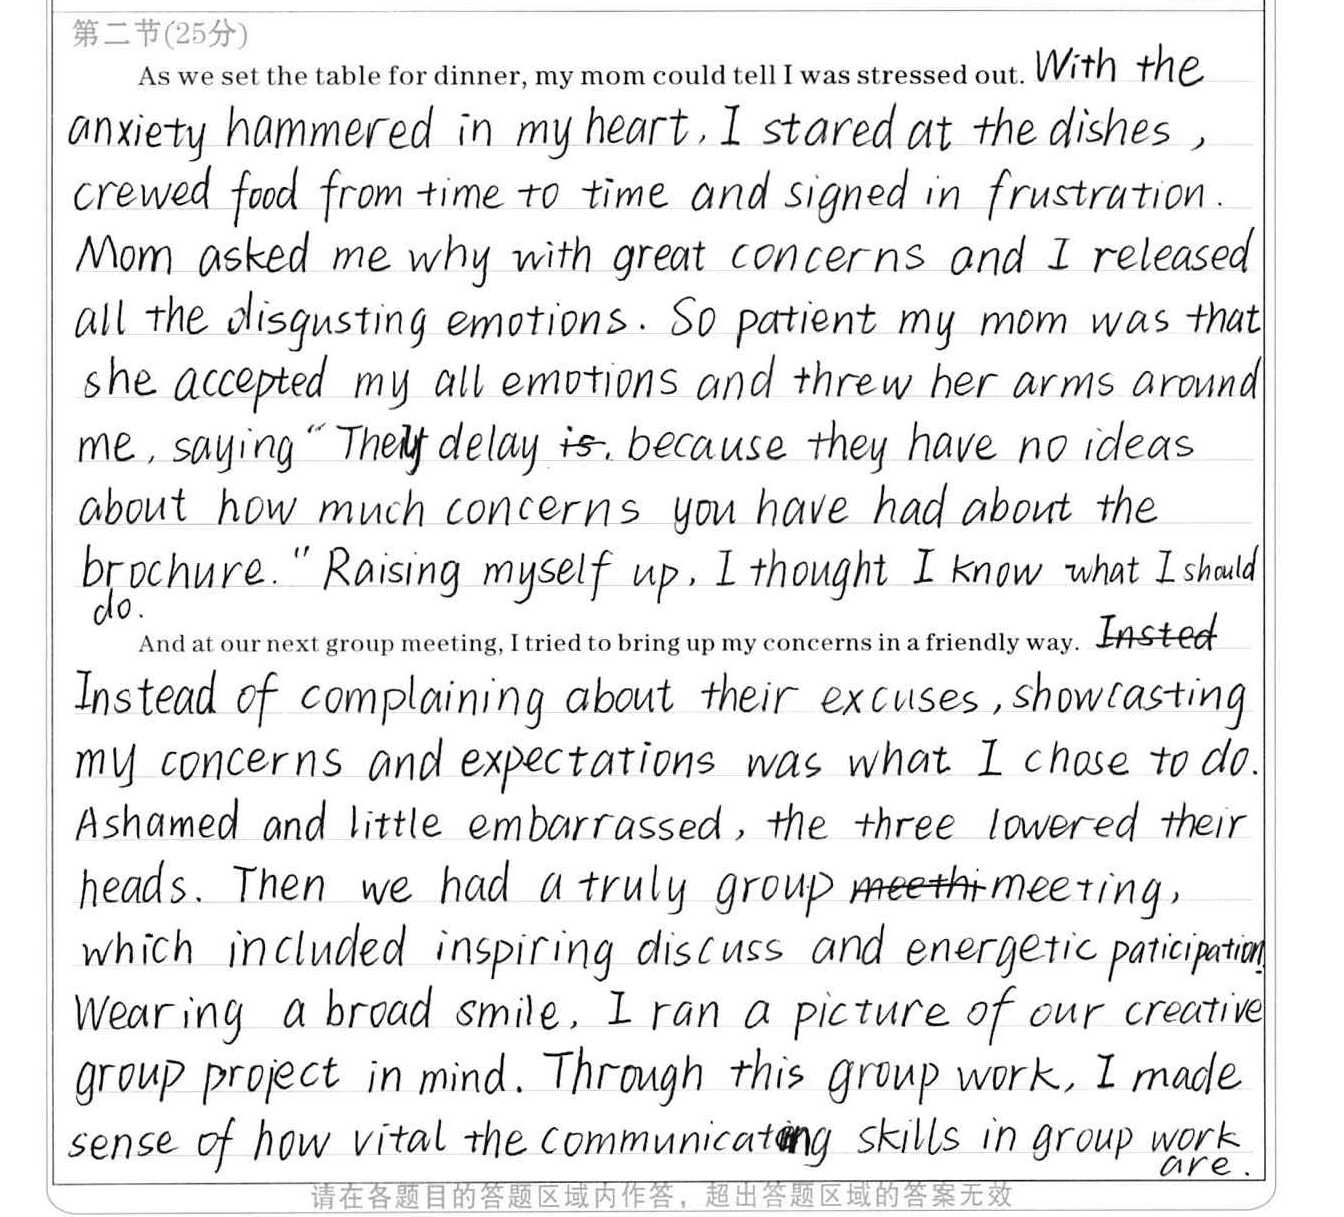 第二节(25分)
As we set the table for dinner, my mom could tell I was stressed out. With the
anxiety hammered in my heart, I stared at the dishes ,
crewed food from time to time and signed in frustration.
Mom asked me why with great concerns and I released
all the disgusting emotions. So patient my mom was that
she accepted my all emotions and threw her arms around
me, saying “ They delay is. because they have no ideas
about how much concerns you have had about the
brochure." Raising myself up, I thought I know what I should
do.
And at our next group meeting, I tried to bring up my concerns in a friendly way. Insted
Instead of complaining about their excuses, showcasting
my concerns and expectations was what I chose to do.
Ashamed and little embarrassed, the three lowered their
heads. Then we had a truly group meethi meeting,
which included inspiring discuss and energetic paticipation.
Wearing a broad smile, I ran a picture of our creative
group project in mind. Through this group work, I made
sense of how vital the communicating skills in group work
are.
请在各题目的答题区域内作答，超出答题区域的答案无效